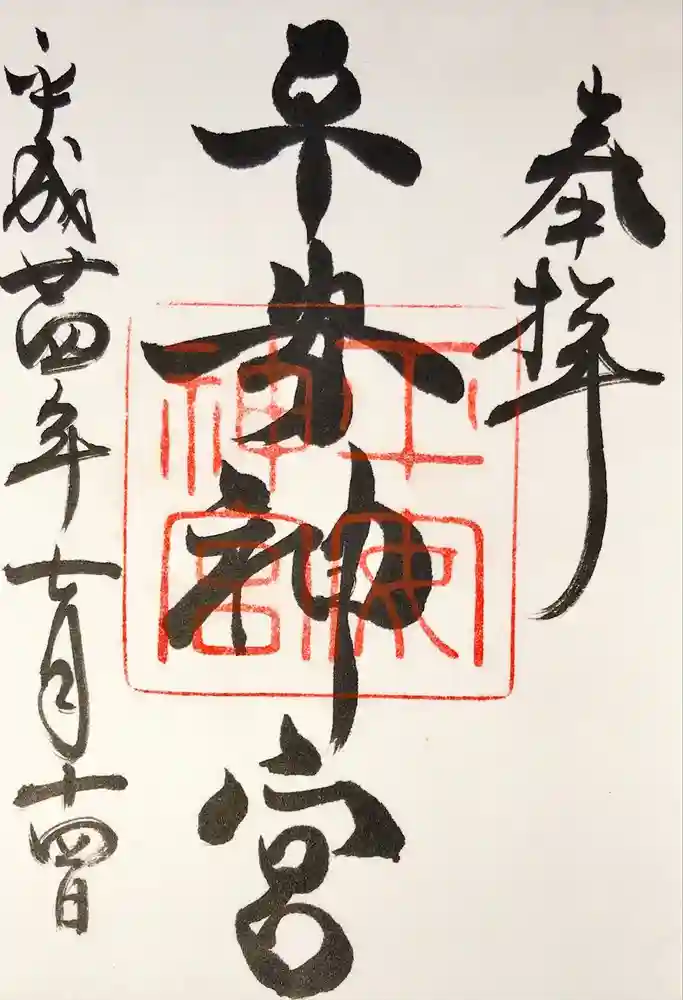 奉拝
神宮
平成廿四年七月十四日
神宮